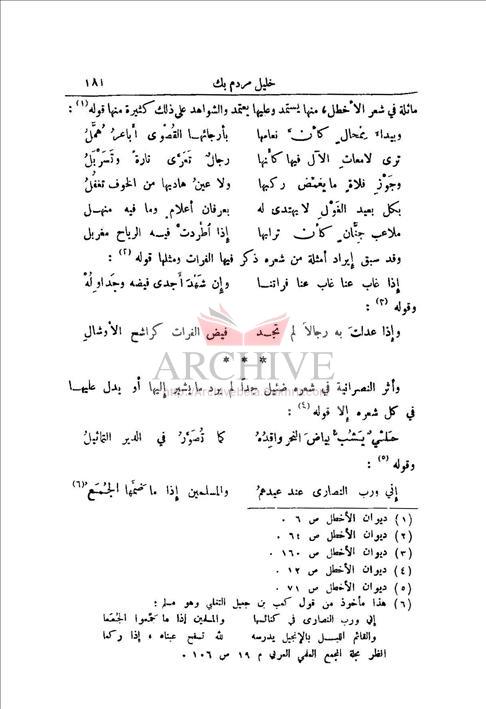 خليل مردم بك ١٨١
ماثلة في شعر الأخطل، منها يستمد وعليها يعتمد والشواهد على ذلك كثيرة منها قوله (١) :
وبيداءَ ممحالٍ كأنّ نعامها بأرجائها القصوى أباعرُ هُمَّلُ
ترى لامعات الآل فيها كأنها رجالٌ تَعَرّى تارةً وتَسَربَلُ
وجَوْزِ فلاةٍ ما يغمّض ركبها ولا عينُ هاديها من الخوف تغفُلُ
بكل بعيد الغَوْلِ لا يهتدى له بعرفان أعلامٍ وما فيه منهل
ملاعب جِنّانٍ كأن ترابها إذا اطّردت فيه الرياح مغربل
وقد سبق إيراد أمثلة من شعره ذكر فيها الفرات ومثلها قوله (٢) :
إذا غاب عنا غاب عنا فراتنا وإن شَهْدَ أجدى فيضه وجداوله
وقوله (٣) :
وإذا عدلت به رجالاً لم تجد فيض الفرات كراشح الأوشال
ARCHIVE
* * *
وأثر النصرانية في شعره ضئيل جداً لم يرد ما يشير إليها أو يدل عليها
في كل شعره إلا قوله (٤) :
حَليٌ يَشُبُّ بياضَ النحر واقِدُهُ كما تُصَوَّرُ في الدير التماثيلُ
وقوله (٥) :
إني ورب النصارى عند عيدهمُ والمسلمين إذا ما ضمّها الجُمَعُ (٦)
(١) ديوان الأخطل ص ٦ .
(٢) ديوان الأخطل ص ٦٤ .
(٣) ديوان الأخطل ص ١٦٠ .
(٤) ديوان الأخطل ص ١٢ .
(٥) ديوان الأخطل ص ٧١ .
(٦) هذا مأخوذ من قول كعب بن جعيل التغلبي وهو مسلم :
إني ورب النصارى في كنائسها والمسلمين إذا ما جمّعوا الجُمَعا
والقائم الليل بالإنجيل يدرسه لله تسفح عيناه ، إذا ركعا
انظر مجلة المجمع العلمي العربي م ١٩ ص ١٠٦ .